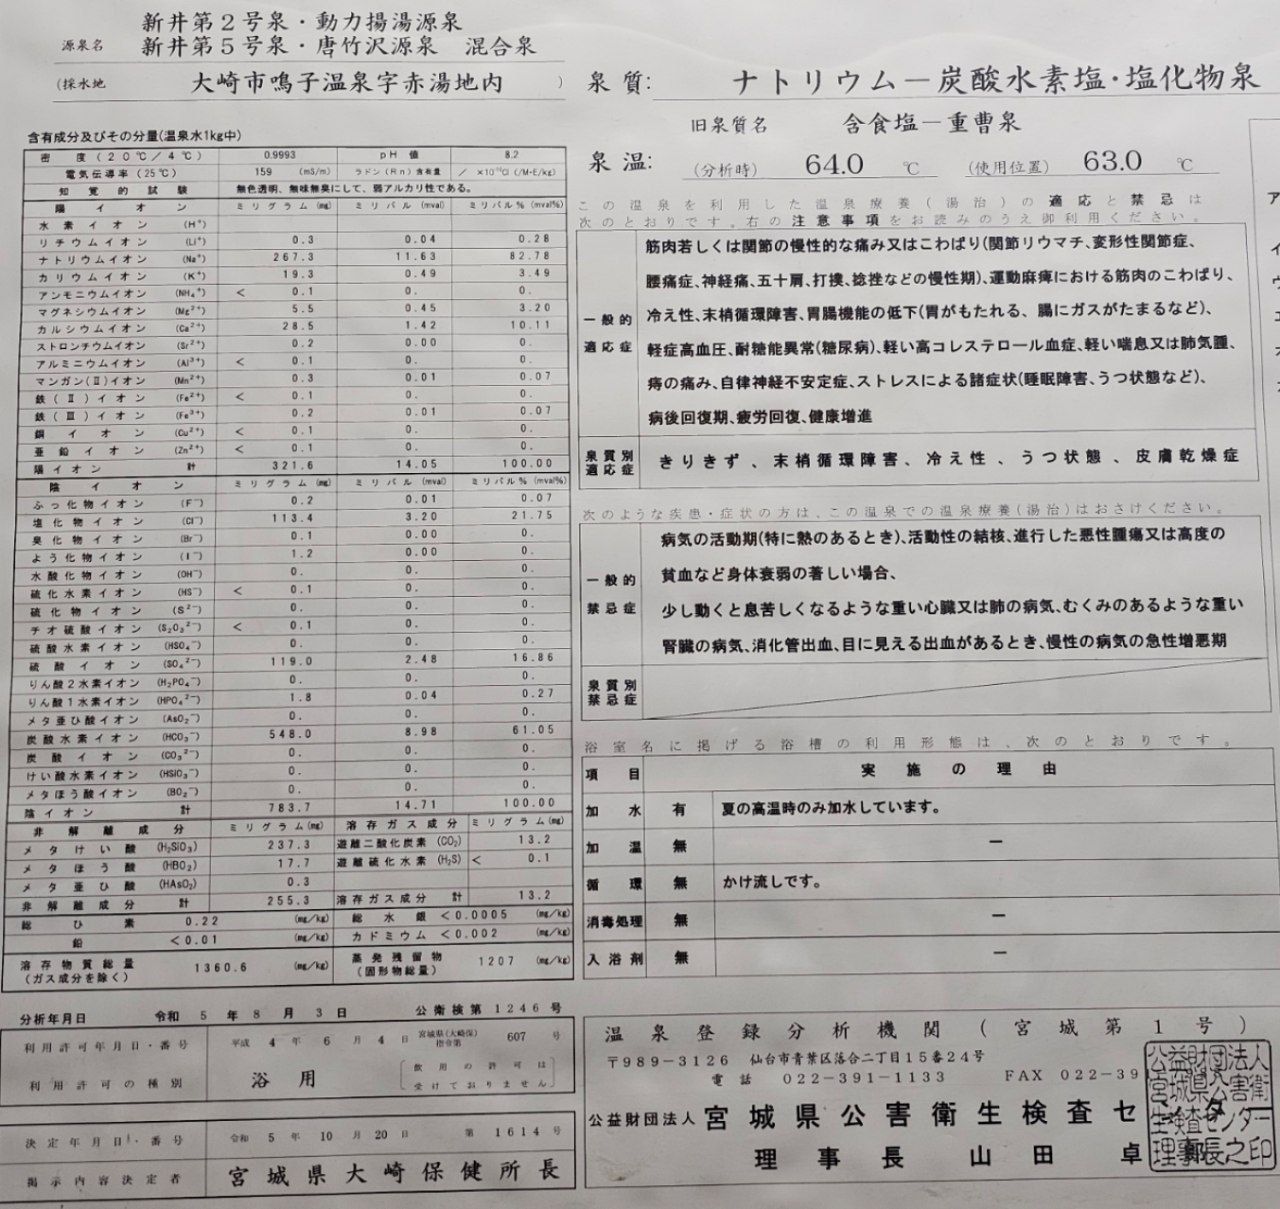 新井第２号泉・動力揚湯源泉
源泉名 新井第５号泉・唐竹沢源泉 混合泉
(採水地 大崎市鳴子温泉字赤湯地内 )
含有成分及びその分量(温泉水1kg中)
密度(20℃/4℃) 0.9993 pH値 8.2
電気伝導率(25℃) 159 (mS/m) ラドン(Rn)含有量 / ×10⁻¹⁰Ci (/M-E/kg)
知覚的試験 無色透明、無味無臭にして、弱アルカリ性である。
陽イオン ミリグラム(mg) ミリバル(mval) ミリバル%(mval%)
水素イオン (H⁺)
リチウムイオン (Li⁺) 0.3 0.04 0.28
ナトリウムイオン (Na⁺) 267.3 11.63 82.78
カリウムイオン (K⁺) 19.3 0.49 3.49
アンモニウムイオン (NH₄⁺) < 0.1 0. 0.
マグネシウムイオン (Mg²⁺) 5.5 0.45 3.20
カルシウムイオン (Ca²⁺) 28.5 1.42 10.11
ストロンチウムイオン (Sr²⁺) 0.2 0.00 0.
アルミニウムイオン (Al³⁺) < 0.1 0. 0.
マンガン(Ⅱ)イオン (Mn²⁺) 0.3 0.01 0.07
鉄(Ⅱ)イオン (Fe²⁺) < 0.1 0. 0.
鉄(Ⅲ)イオン (Fe³⁺) 0.2 0.01 0.07
銅イオン (Cu²⁺) < 0.1 0. 0.
亜鉛イオン (Zn²⁺) < 0.1 0. 0.
陽イオン 計 321.6 14.05 100.00
陰イオン ミリグラム(mg) ミリバル(mval) ミリバル%(mval%)
ふっ化物イオン (F⁻) 0.2 0.01 0.07
塩化物イオン (Cl⁻) 113.4 3.20 21.75
臭化物イオン (Br⁻) 0.1 0.00 0.
よう化物イオン (I⁻) 1.2 0.00 0.
水酸化物イオン (OH⁻) 0. 0. 0.
硫化水素イオン (HS⁻) < 0.1 0. 0.
硫化物イオン (S²⁻) 0. 0. 0.
チオ硫酸イオン (S₂O₃²⁻) < 0.1 0. 0.
硫酸水素イオン (HSO₄⁻) 0. 0. 0.
硫酸イオン (SO₄²⁻) 119.0 2.48 16.86
りん酸2水素イオン (H₂PO₄⁻) 0. 0. 0.
りん酸1水素イオン (HPO₄²⁻) 1.8 0.04 0.27
メタ亜ひ酸イオン (AsO₂⁻) 0. 0. 0.
炭酸水素イオン (HCO₃⁻) 548.0 8.98 61.05
炭酸イオン (CO₃²⁻) 0. 0. 0.
けい酸水素イオン (HSiO₃⁻) 0. 0. 0.
メタほう酸イオン (BO₂⁻) 0. 0. 0.
陰イオン 計 783.7 14.71 100.00
非解離成分 ミリグラム(mg) 溶存ガス成分 ミリグラム(mg)
メタけい酸 (H₂SiO₃) 237.3 遊離二酸化炭素 (CO₂) 13.2
メタほう酸 (HBO₂) 17.7 遊離硫化水素 (H₂S) < 0.1
メタ亜ひ酸 (HAsO₂) 0.3
非解離成分 計 255.3 溶存ガス成分 計 13.2
総ひ素 0.22 (mg/kg) 総水銀 <0.0005 (mg/kg)
鉛 <0.01 (mg/kg) カドミウム <0.002 (mg/kg)
溶存物質総量 (ガス成分を除く) 1360.6 (mg/kg) 蒸発残留物 (固形物総量) 1207 (mg/kg)
分析年月日 令和 5 年 8 月 3 日 公衛検第 1246 号
利用許可年月日・番号 平成 4 年 6 月 4 日 宮城県(大崎保)指令第 607 号
利用許可の種別 浴用 〔飲用の許可は受けておりません〕
決定年月日・番号 令和 5 年 10 月 20 日 第 1614 号
掲示内容決定者 宮城県大崎保健所長
泉質: ナトリウム－炭酸水素塩・塩化物泉
旧泉質名 含食塩－重曹泉
泉温: (分析時) 64.0 ℃ (使用位置) 63.0 ℃
この温泉を利用した温泉療養(湯治)の適応と禁忌は
次のとおりです。右の注意事項をお読みのうえ御利用ください。
一般的適応症
筋肉若しくは関節の慢性的な痛み又はこわばり(関節リウマチ、変形性関節症、
腰痛症、神経痛、五十肩、打撲、捻挫などの慢性期)、運動麻痺における筋肉のこわばり、
冷え性、末梢循環障害、胃腸機能の低下(胃がもたれる、腸にガスがたまるなど)、
軽症高血圧、耐糖能異常(糖尿病)、軽い高コレステロール血症、軽い喘息又は肺気腫、
痔の痛み、自律神経不安定症、ストレスによる諸症状(睡眠障害、うつ状態など)、
病後回復期、疲労回復、健康増進
泉質別適応症 きりきず、末梢循環障害、冷え性、うつ状態、皮膚乾燥症
次のような疾患・症状の方は、この温泉での温泉療養(湯治)はおさけください。
一般的禁忌症
病気の活動期(特に熱のあるとき)、活動性の結核、進行した悪性腫瘍又は高度の
貧血など身体衰弱の著しい場合、
少し動くと息苦しくなるような重い心臓又は肺の病気、むくみのあるような重い
腎臓の病気、消化管出血、目に見える出血があるとき、慢性の病気の急性増悪期
泉質別禁忌症
浴室名に掲げる浴槽の利用形態は、次のとおりです。
項目 実施の理由
加水 有 夏の高温時のみ加水しています。
加温 無 －
循環 無 かけ流しです。
消毒処理 無 －
入浴剤 無 －
温泉登録分析機関(宮城第1号)
〒989-3126 仙台市青葉区落合二丁目15番24号
電話 022-391-1133 FAX 022-39
公益財団法人 宮城県公害衛生検査セ
理事長 山田 卓
公益財団法人
宮城県公害衛
生検査センター
理事長之印